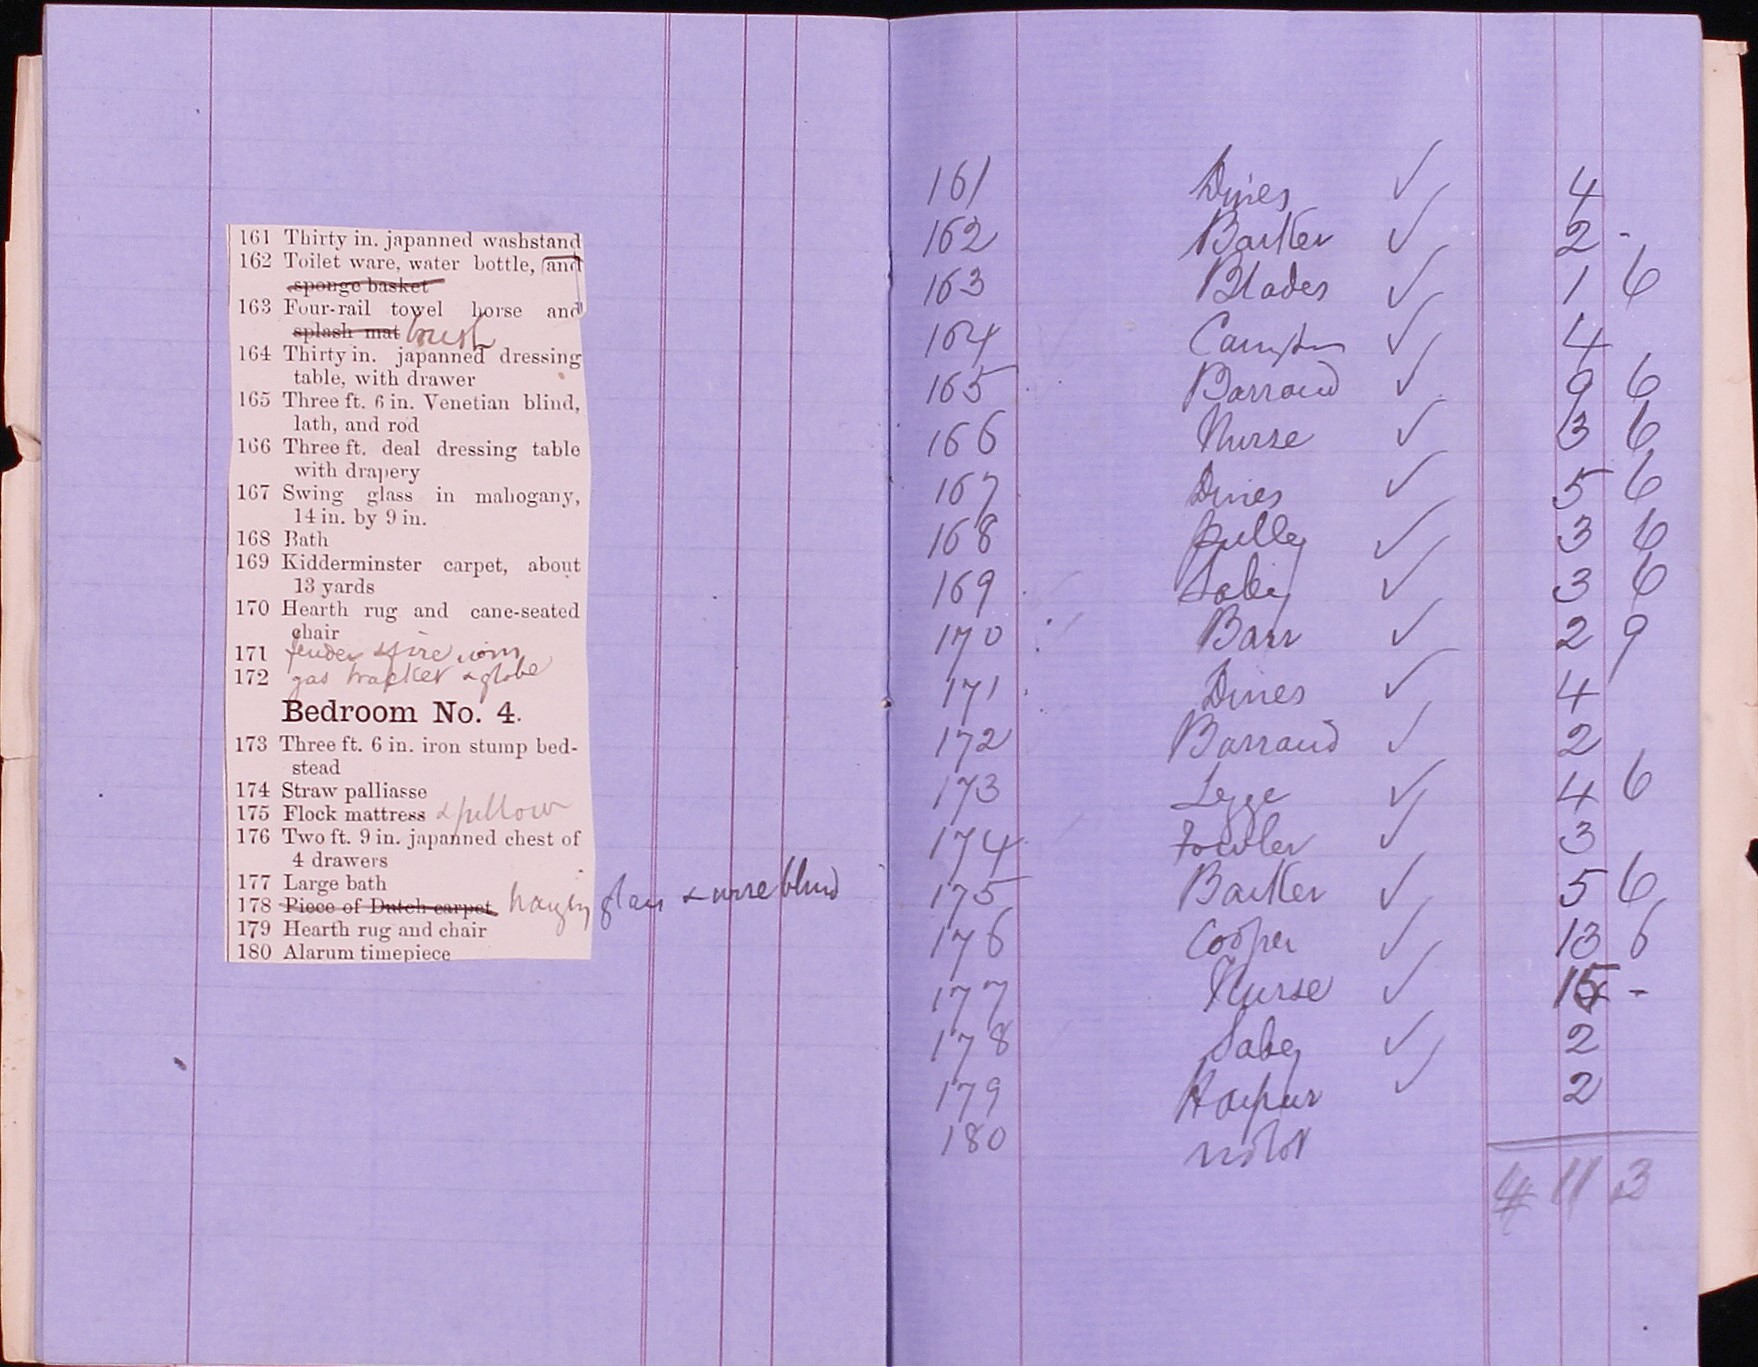 161 Thirty in. japanned washstand
162 Toilet ware, water bottle, and
sponge basket
163 Four-rail towel horse and
splash mat brush
164 Thirty in. japanned dressing
table, with drawer
165 Three ft. 6 in. Venetian blind,
lath, and rod
166 Three ft. deal dressing table
with drapery
167 Swing glass in mahogany,
14 in. by 9 in.
168 Bath
169 Kidderminster carpet, about
13 yards
170 Hearth rug and cane-seated
chair
171 fender & fire irons
172 gas bracket & globe
Bedroom No. 4.
173 Three ft. 6 in. iron stump bed-
stead
174 Straw palliasse
175 Flock mattress & pillow
176 Two ft. 9 in. japanned chest of
4 drawers
177 Large bath
178 Piece of Dutch carpet hanging glass & wire blind
179 Hearth rug and chair
180 Alarum timepiece
161 Dines ✓ 4
162 Barker ✓ 2 -
163 Blades ✓ 1 6
164 ✓ 4
165 Barraud ✓ 9 6
166 Nurse ✓ 3 6
167 Dines ✓ 5 6
168 ✓ 3 6
169 Saby ✓ 3 6
170 Barr ✓ 2 9
171 Dines ✓ 4
172 Barraud ✓ 2
173 Legge ✓ 4 6
174 Fowler ✓ 3
175 Barker ✓ 5 6
176 Cooper ✓ 13 6
177 Nurse ✓ 15 -
178 Saby ✓ 2
179 Harper ✓ 2
180 no lot
4 11 3